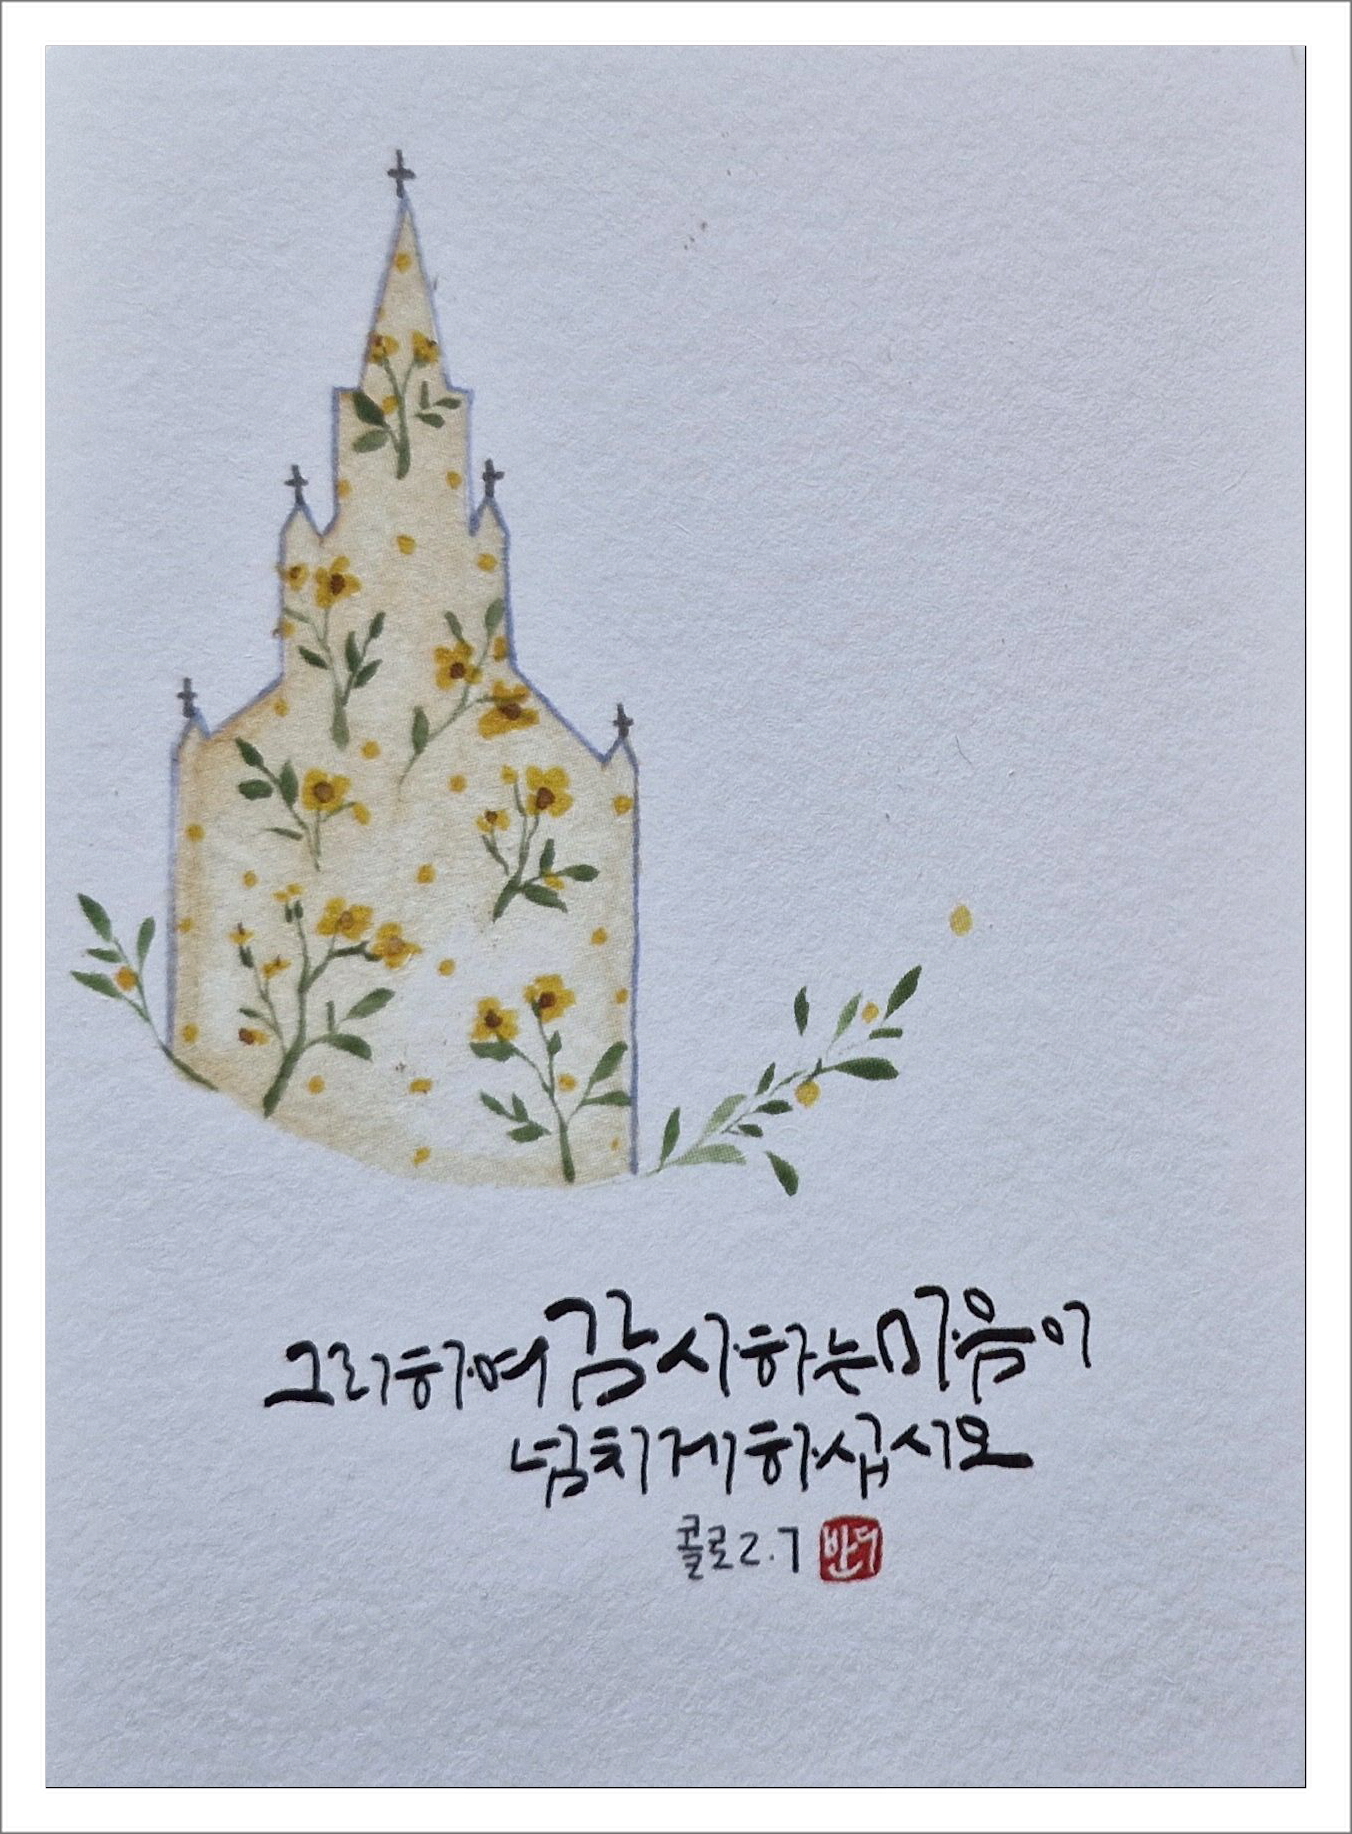 그리하여 감사하는 마음이
넘치게 하십시오
콜로 2.7 반디